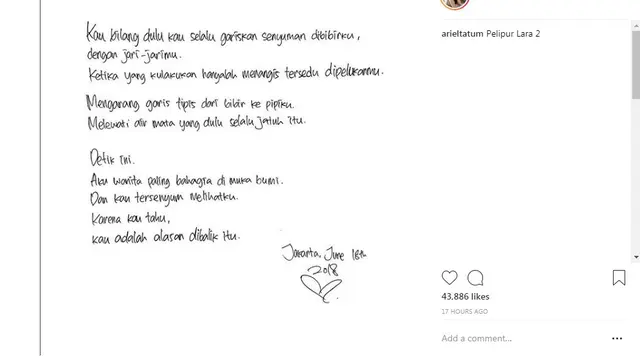 Kau bilang dulu kau selalu gariskan senyuman dibibirku,
dengan jari-jarimu.
Ketika yang kulakukan hanyalah menangis tersedu dipelukanmu.
Mengarang garis tipis dari bibir ke pipiku.
Melewati air mata yang dulu selalu jatuh itu.
Detik ini.
Aku wanita paling bahagia di muka bumi.
Dan kau tersenyum melihatku.
Karena kau tahu,
kau adalah alasan dibalik itu.
Jakarta, June 18th
2018
arieltatum Pelipur Lara 2
43,886 likes
17 HOURS AGO
Add a comment...